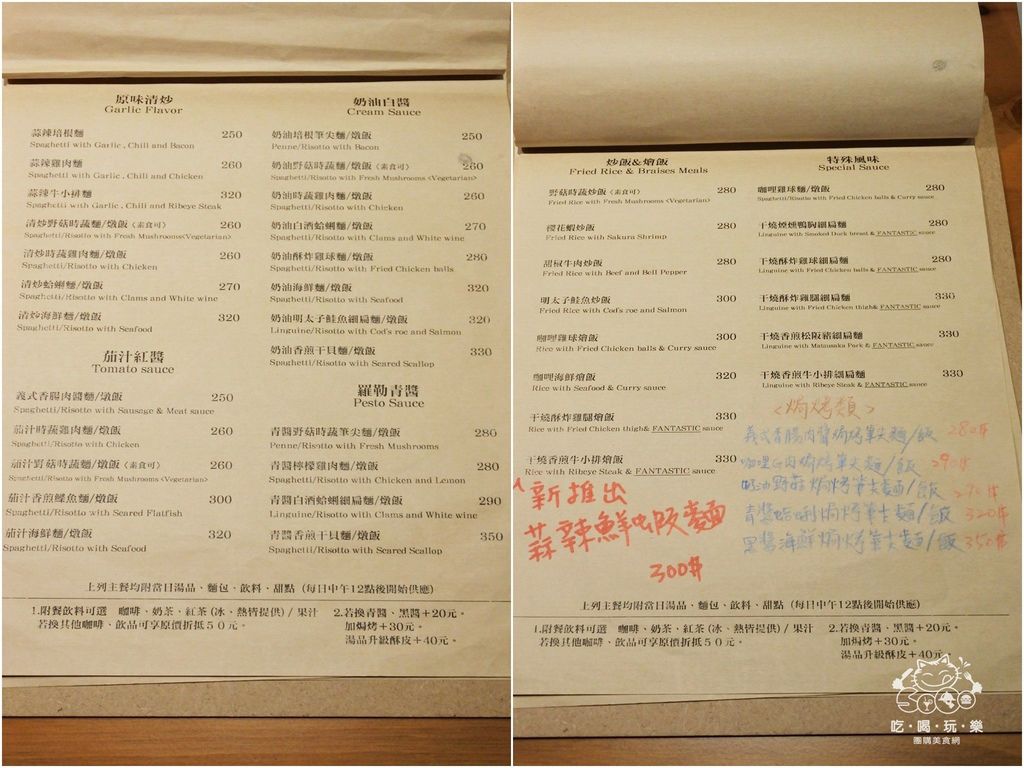 原味清炒
Garlic Flavor
蒜辣培根麵 250
Spaghetti with Garlic, Chill and Bacon
蒜辣雞肉麵 260
Spaghetti with Garlic, Chill and Chicken
蒜辣牛小排麵 320
Spaghetti with Garlic, Chill and Ribeye Steak
清炒野菇時蔬麵/燉飯(素食可) 260
Spaghetti/Risotto with Fresh Mushrooms<Vegetarian>
清炒時蔬雞肉麵/燉飯 260
Spaghetti/Risotto with Chicken
清炒蛤蜊麵/燉飯 270
Spaghetti/Risotto with Clams and White wine
清炒海鮮麵/燉飯 320
Spaghetti/Risotto with Seafood
茄汁紅醬
Tomato sauce
義式香腸肉醬麵/燉飯 250
Spaghetti/Risotto with Sausage & Meat sauce
茄汁時蔬雞肉麵/燉飯 260
Spaghetti/Risotto with Chicken
茄汁野菇時蔬麵/燉飯(素食可) 260
Spaghetti/Risotto with Fresh Mushrooms <Vegetarian>
茄汁香煎鰈魚麵/燉飯 300
Spaghetti/Risotto with Seared Flatfish
茄汁海鮮麵/燉飯 320
Spaghetti/Risotto with Seafood
奶油白醬
Cream Sauce
奶油培根筆尖麵/燉飯 250
Penne/Risotto with Bacon
奶油野菇時蔬麵/燉飯(素食可) 260
Spaghetti/Risotto with Fresh Mushrooms <Vegetarian>
奶油時蔬雞肉麵/燉飯 260
Spaghetti/Risotto with Chicken
奶油白酒蛤蜊麵/燉飯 270
Spaghetti/Risotto with Clams and White wine
奶油酥炸雞球麵/燉飯 280
Spaghetti/Risotto with Fried Chicken balls
奶油海鮮麵/燉飯 320
Spaghetti/Risotto with Seafood
奶油明太子鮭魚細扁麵/燉飯 320
Linguine/Risotto with Cod's roe and Salmon
奶油香煎干貝麵/燉飯 330
Spaghetti/Risotto with Seared Scallop
羅勒青醬
Pesto Sauce
青醬野菇時蔬筆尖麵/燉飯 280
Penne/Risotto with Fresh Mushrooms
青醬檸檬雞肉麵/燉飯 280
Spaghetti/Risotto with Chicken and Lemon
青醬白酒蛤蜊細扁麵/燉飯 290
Linguine/Risotto with Clams and White wine
青醬香煎干貝麵/燉飯 350
Spaghetti/Risotto with Seared Scallop
上列主餐均附當日湯品、麵包、飲料、甜點 (每日中午12點後開始供應)
1.附餐飲料可選 咖啡、奶茶、紅茶(冰、熱皆提供)/果汁
若換其他咖啡、飲品可享原價折抵50元。
2.若換青醬、黑醬+20元。
加焗烤+30元。
湯品升級酥皮+40元。
炒飯&燴飯
Fried Rice & Braises Meals
野菇時蔬炒飯(素食可) 280
Fried Rice with Fresh Mushrooms <Vegetarian>
櫻花蝦炒飯 280
Fried Rice with Sakura Shrimp
甜椒牛肉炒飯 280
Fried Rice with Beef and Bell Pepper
明太子鮭魚炒飯 300
Fried Rice with Cod's roe and Salmon
咖哩雞球燴飯 300
Rice with Fried Chicken balls & Curry sauce
咖哩海鮮燴飯 320
Rice with Seafood & Curry sauce
干燒酥炸雞腿燴飯 330
Rice with Fried Chicken thigh& FANTASTIC sauce
干燒香煎牛小排燴飯 330
Rice with Ribeye Steak & FANTASTIC sauce
新推出
蒜辣鮮蝦麵
300元
特殊風味
Special Sauce
咖哩雞球麵/燉飯 280
Spaghetti/Risotto with Fried Chicken balls & Curry sauce
干燒煙燻鴨胸細扁麵 280
Linguine with Smoked Duck breast & FANTASTIC sauce
干燒酥炸雞球細扁麵 280
Linguine with Fried Chicken balls & FANTASTIC sauce
干燒酥炸雞腿細扁麵 330
Linguine with Fried Chicken thigh& FANTASTIC sauce
干燒香煎松阪豬細扁麵 330
Linguine with Matsusaka Pork & FANTASTIC sauce
干燒香煎牛小排細扁麵 330
Linguine with Ribeye Steak & FANTASTIC sauce
<焗烤類>
義式香腸肉醬焗烤筆尖麵/飯 280元
咖哩雞肉焗烤筆尖麵/飯 290元
奶油野菇焗烤筆尖麵/飯 290元
青醬蛤蜊焗烤筆尖麵/飯 320元
黑醬海鮮焗烤筆尖麵/飯 350元
上列主餐均附當日湯品、麵包、飲料、甜點 (每日中午12點後開始供應)
1.附餐飲料可選 咖啡、奶茶、紅茶(冰、熱皆提供)/果汁
若換其他咖啡、飲品可享原價折抵50元。
2.若換青醬、黑醬+20元。
加焗烤+30元。
湯品升級酥皮+40元。
吃·喝·玩·樂
團購美食網